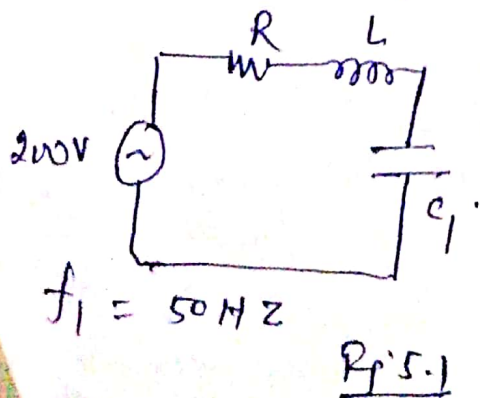 R L
200V ~
C1
f1 = 50 HZ
5.1